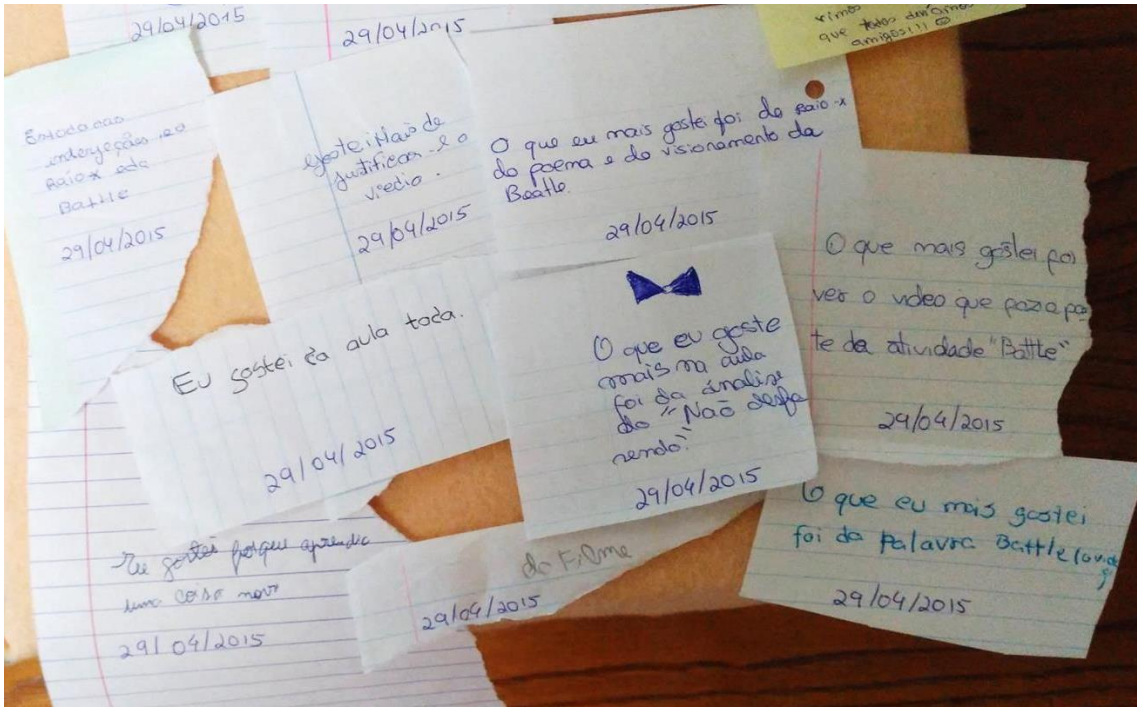 29/04/2015
29/04/2015
rimos
que todos
amigos!!! ☺
Estodo das
interjeições e o
Raiox e da
Battle
29/04/2015
gostei Mais de
justificar e o
viedio.
29/04/2015
O que eu mais gostei foi do raio-x
do poema e do visionamento da
Beatle.
29/04/2015
O que mais gostei foi
ver o video que fazia pa
te da atividade "Battle"
29/04/2015
Eu gostei da aula toda.
29/04/2015
O que eu goste
mais na aula
foi da ánalise
do "Não desfa
zendo".
29/04/2015
O que eu mais gostei
foi da palavra Battle
29/04/2015
Eu gostei porque aprendi
uma coisa nova
29/04/2015
do Filme
29/04/2015